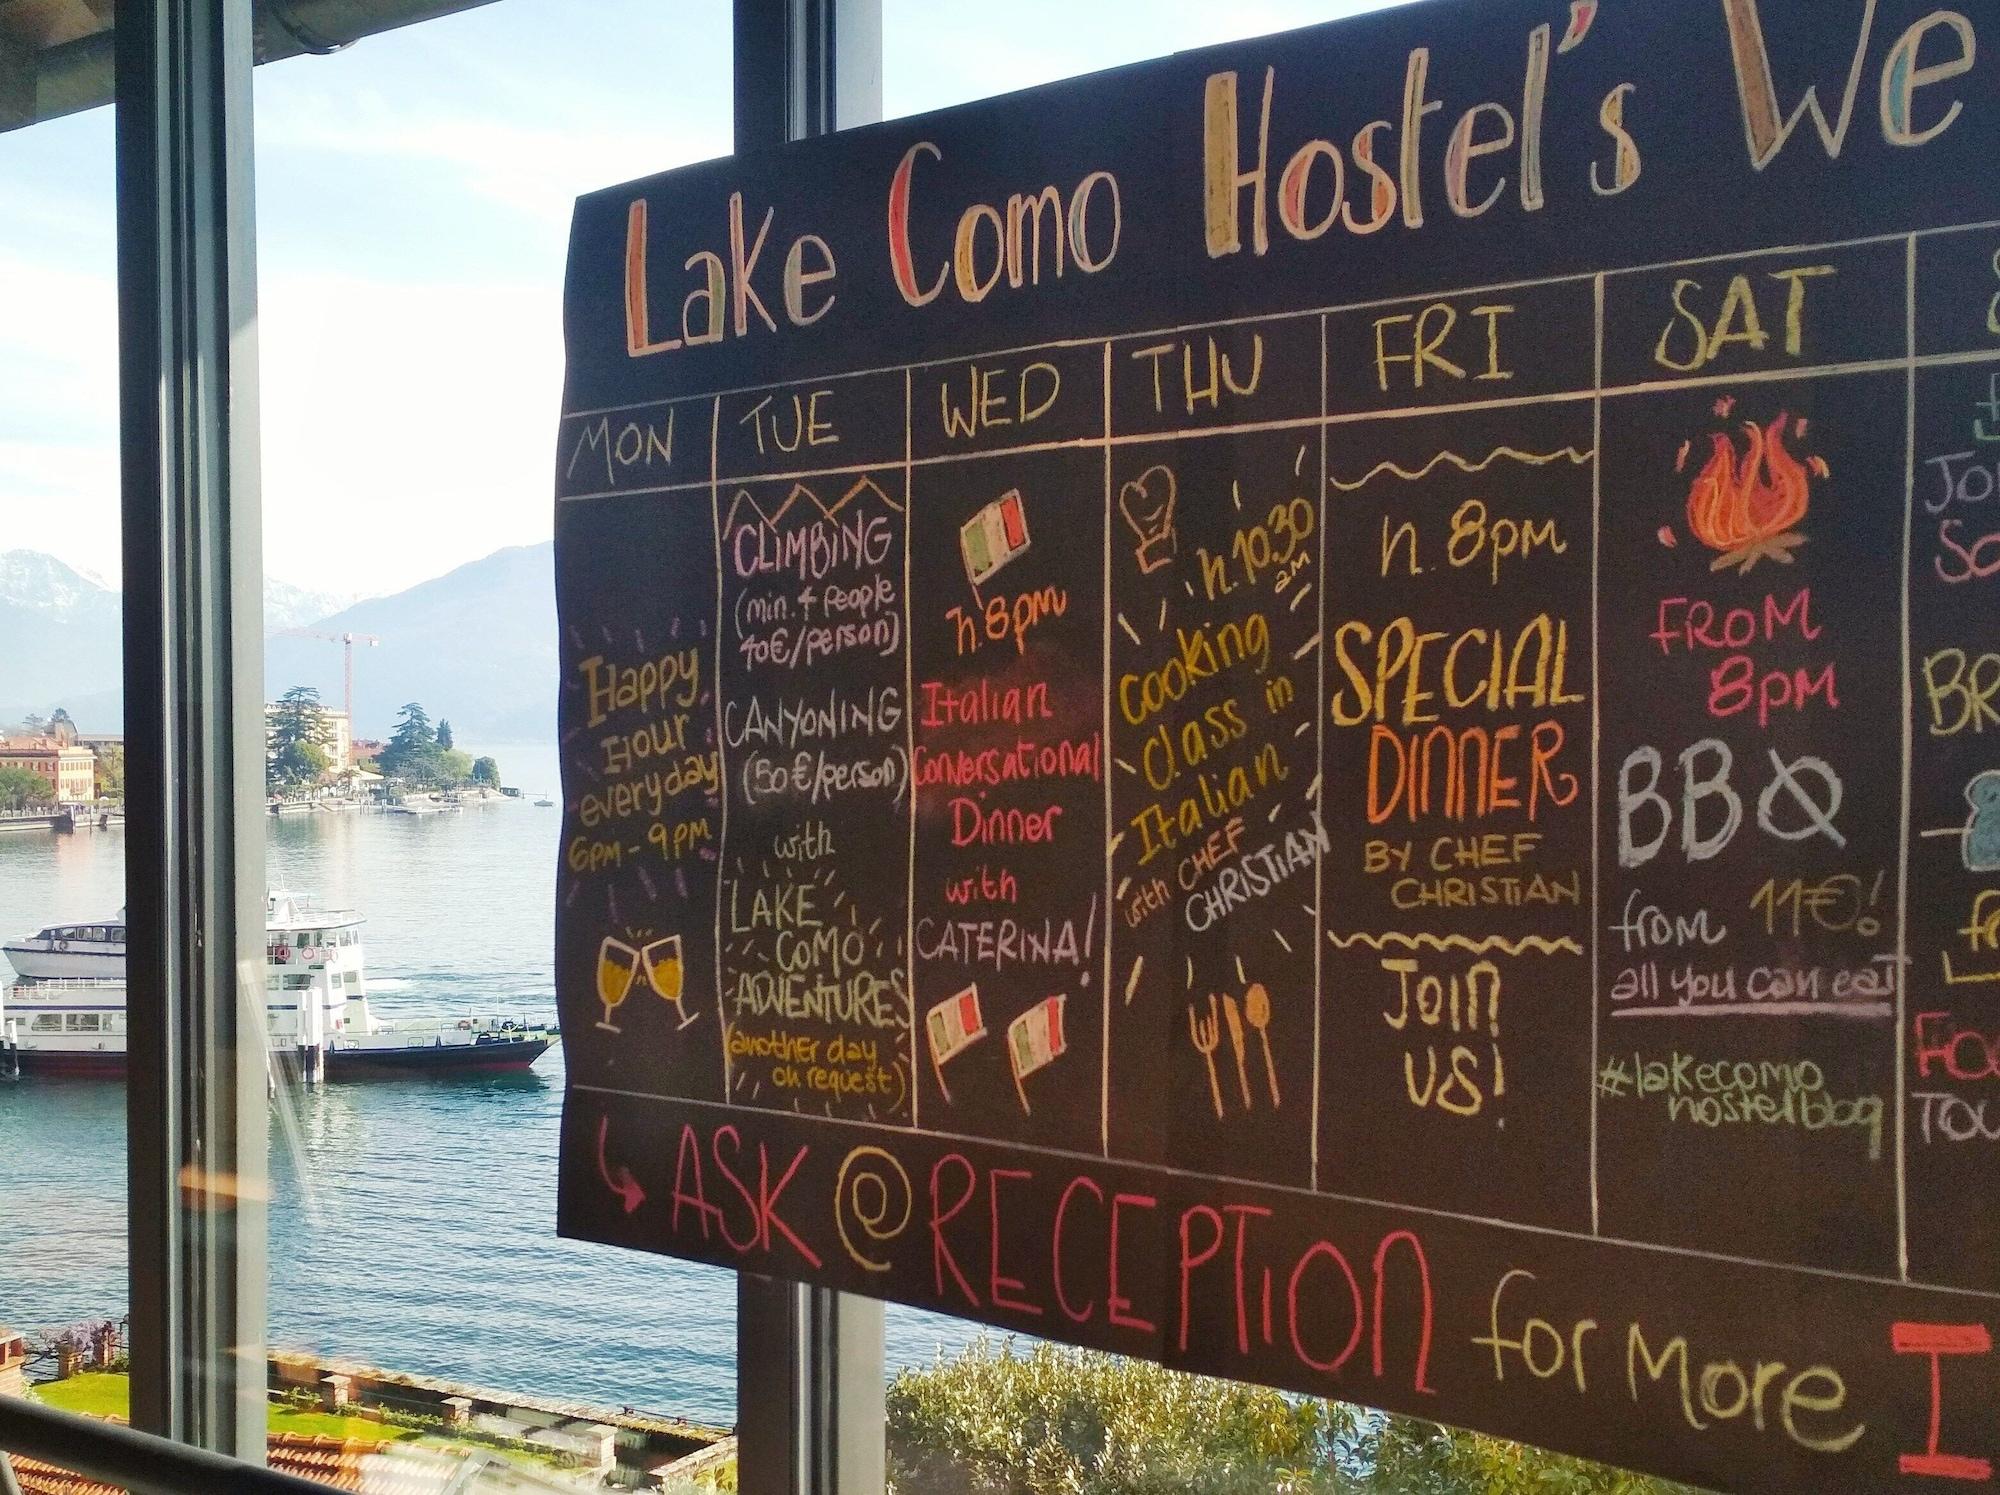 Lake Como Hostel's We
MON
Happy
Hour
everyday
6pm - 9pm
TUE
CLIMBING
(min. 4 people
40€/person)
CANYONING
(50€/person)
with
LAKE
COMO
ADVENTURES
(another day
on request)
WED
h. 8pm
Italian
Conversational
Dinner
with
CATERINA!
THU
h. 10.30
am
Cooking
Class in
Italian
with CHEF
CHRISTIAN
FRI
h. 8pm
SPECIAL
DINNER
BY CHEF
CHRISTIAN
Join
US!
SAT
FROM
8pm
BBQ
from 11€!
all you can eat
#lakecomo
hostelblog
BR
TOU
ASK @ RECEPTION for more I